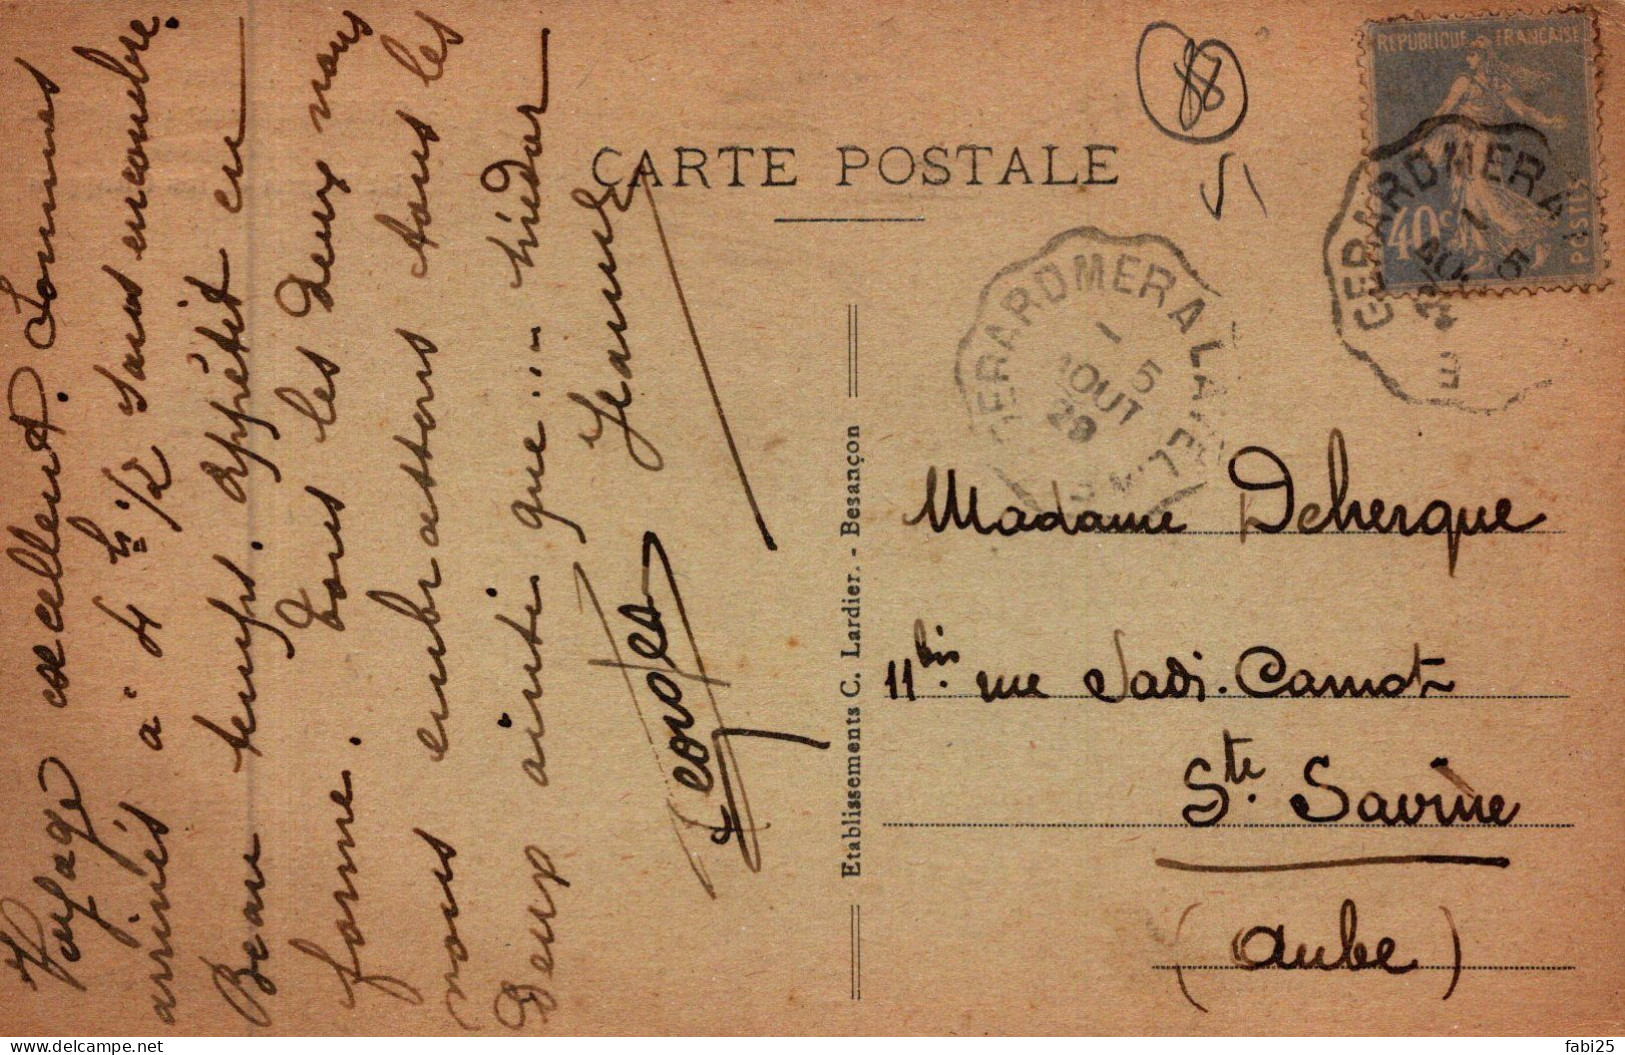 Voyage excellent. Sommes
arrivés à 4 h 1/2 sans encombre.
Beau temps. appétit en
forme. Tous les deux nous
nous embrassons tous les
Deux ainsi que
Jeanne
Georges
88
CARTE POSTALE
REPUBLIQUE FRANÇAISE
40c
POSTES
GERARDMER A
1 5
AOUT
GERARDMER A LA
1 5
AOUT
29
Etablissements C. Lardier. - Besançon
Madame Decherque
11bis. rue Sadi-Carnot
Ste. Savine
(Aube)
fabi25